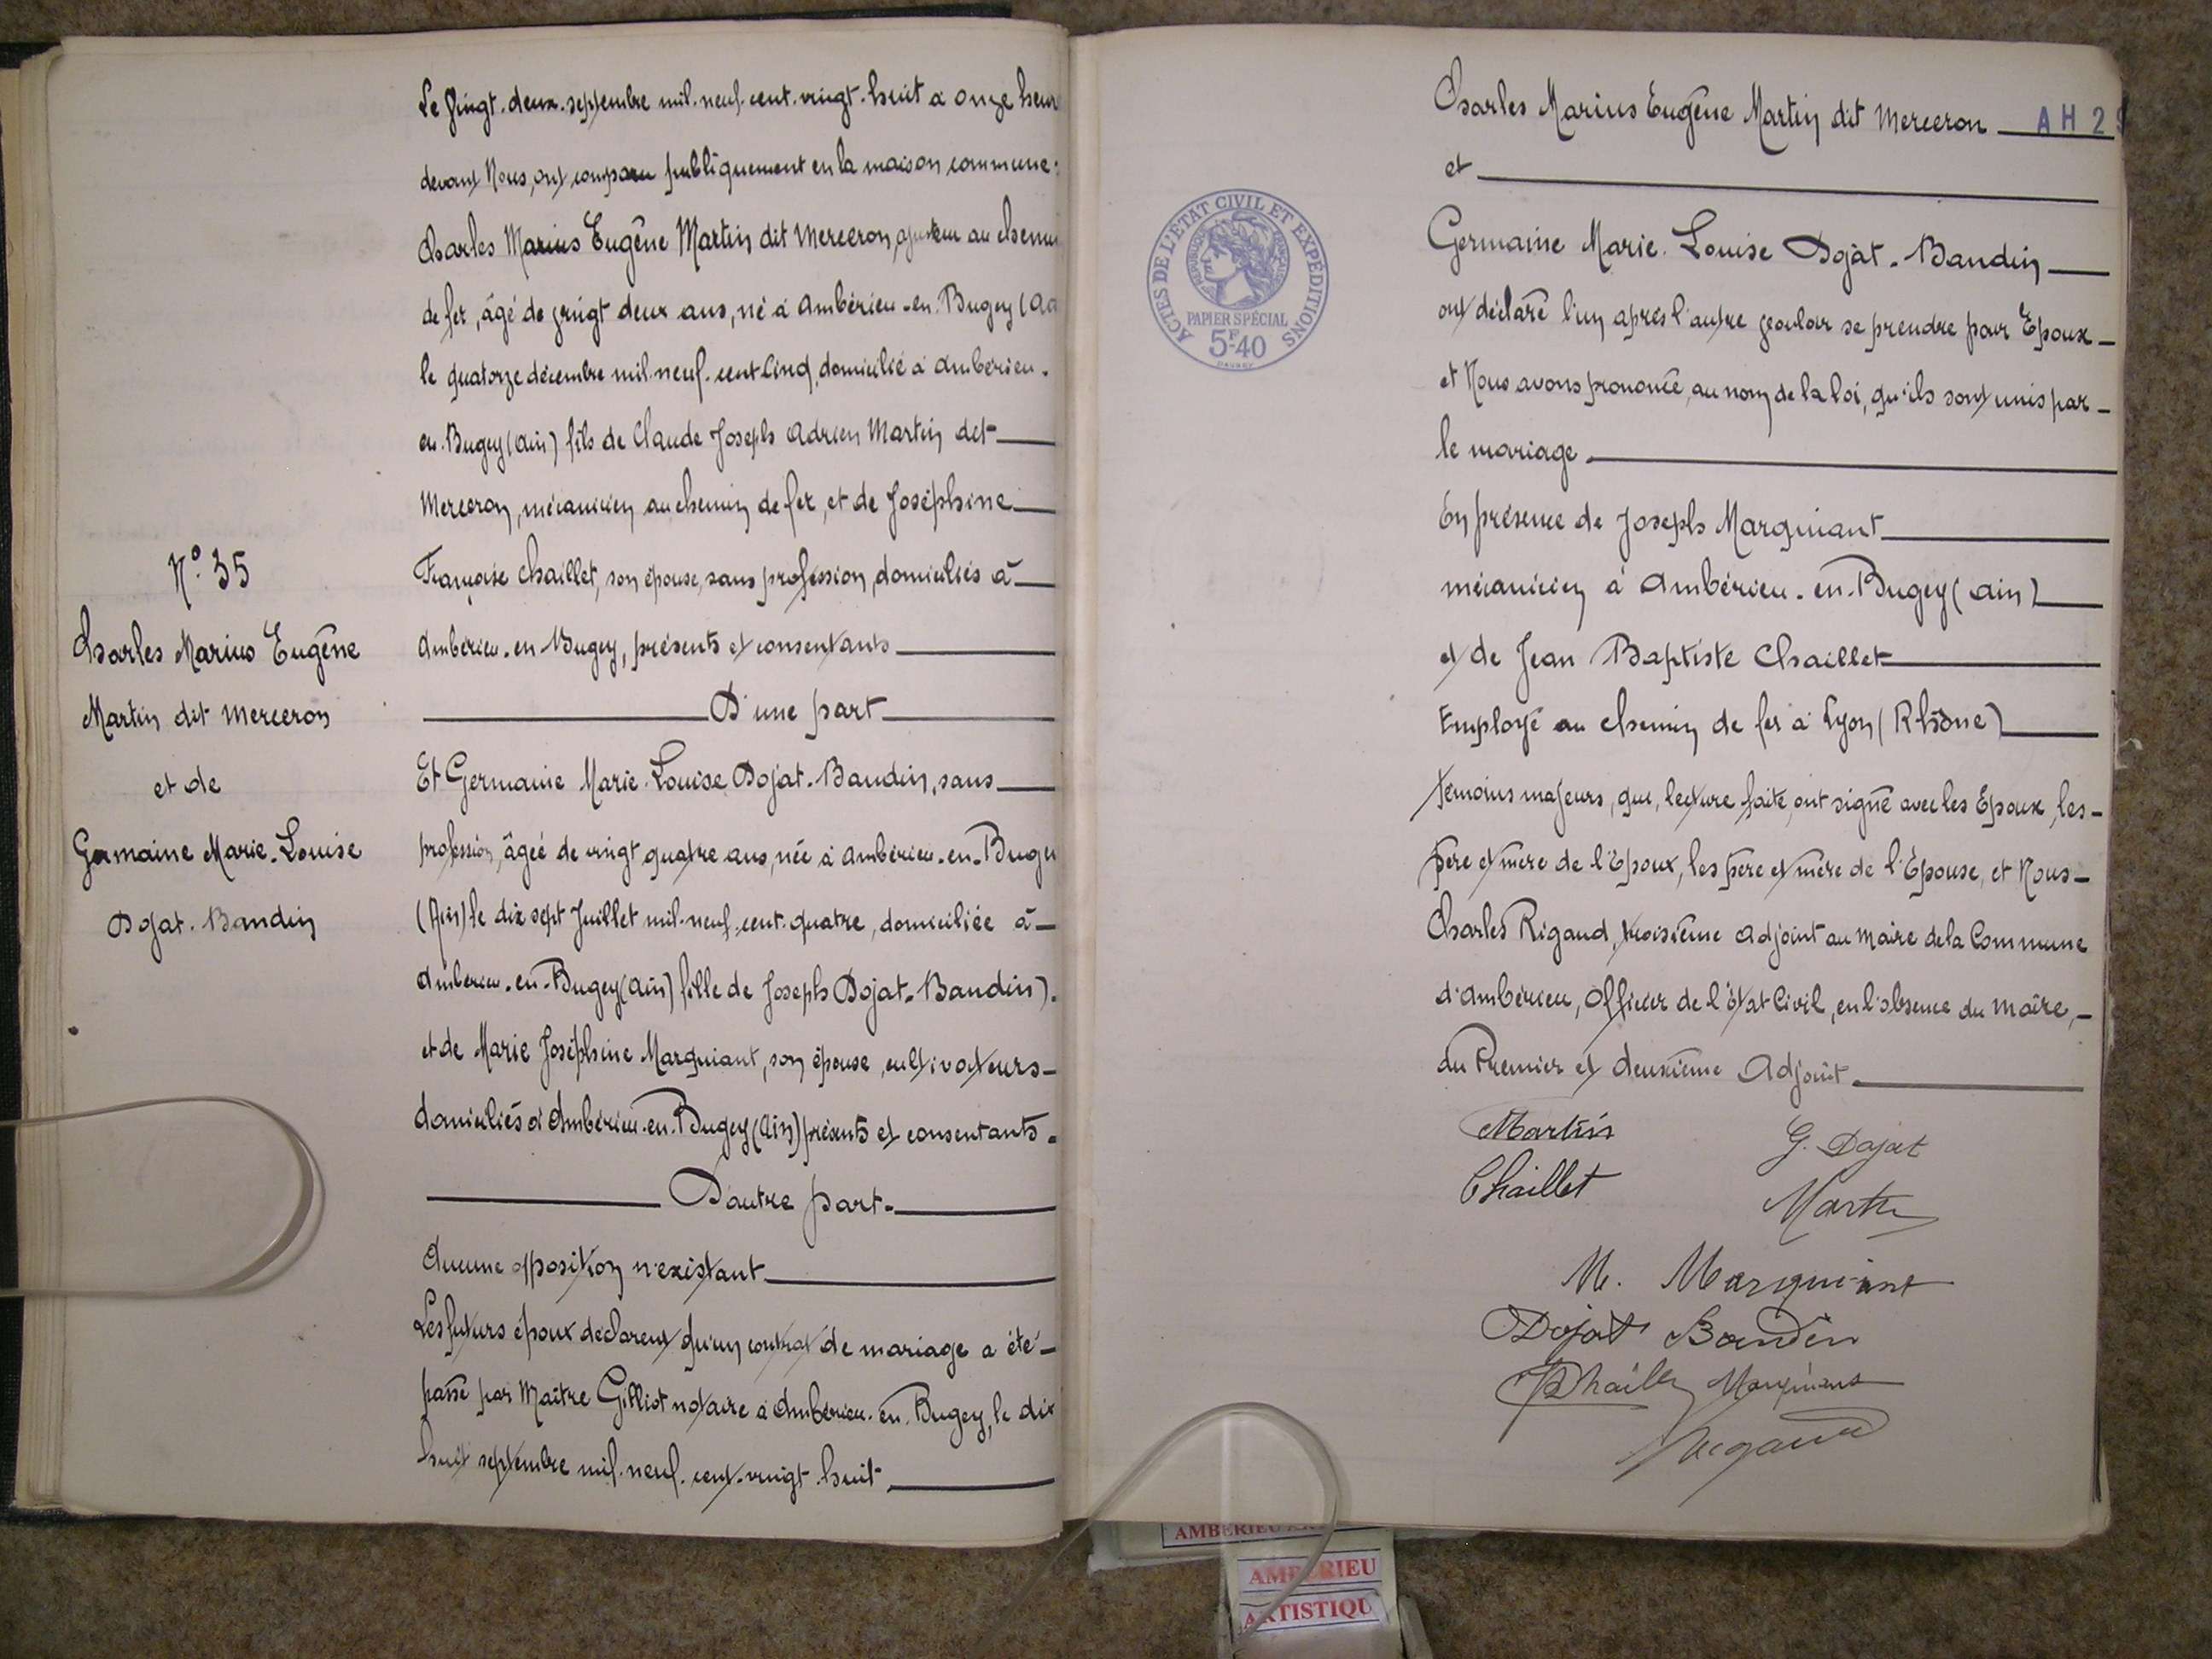 N° 35
Charles Marius Eugêne
Martin dit Merceron
et de
Germaine Marie-Louise
Dojat-Baudin
Le vingt-deux-septembre mil-neuf-cent-vingt-huit à onze heur
devant Nous, ont comparu publiquement en la maison commune:
Charles Marius Eugêne Martin dit Merceron, ajusteur au chemin
de fer, âgé de vingt deux ans, né à Ambérieu-en-Bugey (A
le quatorze décembre mil-neuf-cent Cinq, domicilié à Ambérieu-
en-Bugey (Ain) fils de Claude Joseph Adrien Martin dit
Merceron, mécanicien au chemin de fer, et de Joséphine
Françoise Chaillet, son épouse, sans profession, domiciliés à
Ambérieu-en-Bugey, présents et consentants
D'une part
Et Germaine Marie-Louise Dojat-Baudin, sans
profession, âgée de vingt quatre ans, née à Ambérieu-en-Buge
(Ain) le dix sept Juillet mil-neuf-cent-quatre, domiciliée à
Ambérieu-en-Bugey (Ain) fille de Joseph Dojat-Baudin).
et de Marie Joséphine Marguiant, son épouse, cultivateurs
domiciliés à Ambérieu-en-Bugey (Ain) présents et consentants.
D'autre part.
Aucune opposition n'existant
Les futurs époux déclarent qu'un contrat de mariage a été
passé par Maître Gilliot notaire à Ambérieu-en-Bugey, le dix
huit septembre mil-neuf-cent-vingt-huit
ACTES DE L'ETAT CIVIL ET EXPÉDITIONS
REPUBLIQUE FRANÇAISE
PAPIER SPÉCIAL
5F40
Charles Marius Eugêne Martin dit Merceron AH 2
et
Germaine Marie-Louise Dojat-Baudin
ont déclaré l'un après l'autre vouloir se prendre pour Epoux
et Nous avons prononcé, au nom de la loi, qu'ils sont unis par
le mariage
En présence de Joseph Marguiant
mécanicien à Ambérieu-en-Bugey (Ain)
et de Jean Baptiste Chaillet
Employé au chemin de fer à Lyon (Rhône)
témoins majeurs, qui, lecture faite, ont signé avec les Epoux, les
père et mère de l'Epoux, les père et mère de l'Epouse, et Nous
Charles Rigaud, troisième adjoint au Maire de la Commune
d'Ambérieu, Officier de l'État Civil, en l'absence du Maire,
du Premier et deuxième Adjoint.
Martin G. Dojat
Chaillet Martin
M. Marguiant
Dojat Baudin
Chaillet Marguiant
Rigaud
AMBERIEU
AMBERIEU
ARTISTIQU